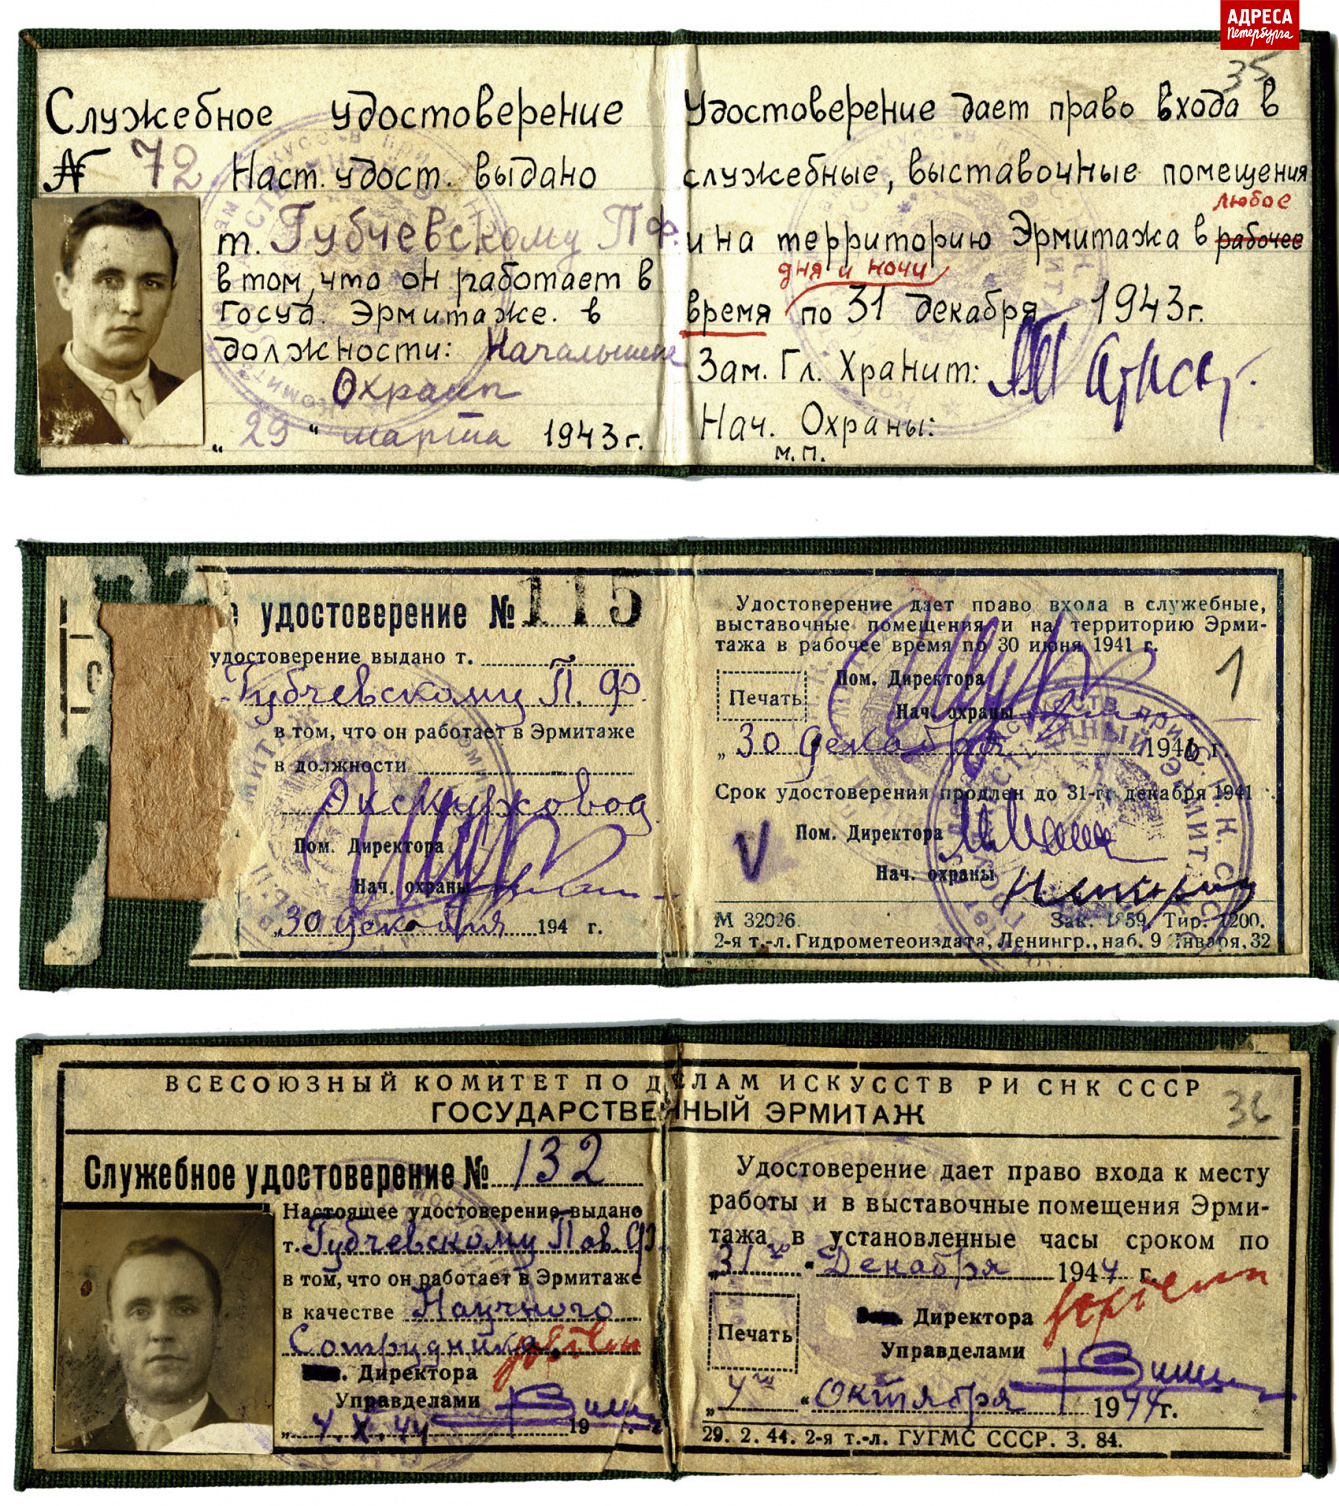 АДРЕСА
Петербурга
35
Служебное удостоверение
№ 72 Наст. удост. выдано
т. Губчевскому П. Ф.
в том, что он работает в
Госуд. Эрмитаже. в
должности: Начальника
Охраны
„29“ марта 1943 г.
Удостоверение дает право входа в
служебные, выставочные помещения
любое
и на территорию Эрмитажа в рабочее
дня и ночи
время по 31 декабря 1943 г.
Зам. Гл. Хранит:
Нач. Охраны:
м. п.
е удостоверение № 115
удостоверение выдано т.
Губчевскому П. Ф.
в том, что он работает в Эрмитаже
в должности
Экскурсовод
Пом. Директора
Нач. охраны
„30 декабря 194 г.
Удостоверение дает право входа в служебные,
выставочные помещения и на территорию Эрми-
тажа в рабочее время по 30 июня 1941 г.
1
Печать
Пом. Директора
Нач. охраны
„30 декабря 1940 г.
Срок удостоверения продлен до 31-го декабря 1941 г.
V
Пом. Директора
Нач. охраны
М 32026. Зак. 1859, Тир. 1200.
2-я т.-л. Гидрометеоиздата, Ленингр., наб. 9 Января, 32
ВСЕСОЮЗНЫЙ КОМИТЕТ ПО ДЕЛАМ ИСКУССТВ РИ СНК СССР
ГОСУДАРСТВЕННЫЙ ЭРМИТАЖ
36
Служебное удостоверение № 132
Настоящее удостоверение выдано
т. Губчевскому Пав. Ф.
в том, что он работает в Эрмитаже
в качестве Научного
Сотрудника
Директора
Управделами
„4. X. 44 19 г.
Удостоверение дает право входа к месту
работы и в выставочные помещения Эрми-
тажа в установленные часы сроком по
„31“ Декабря 1944 г.
Печать
Директора
Управделами
„4“ Октября 1944 г.
29. 2. 44. 2-я т.-л. ГУГМС СССР. З. 84.